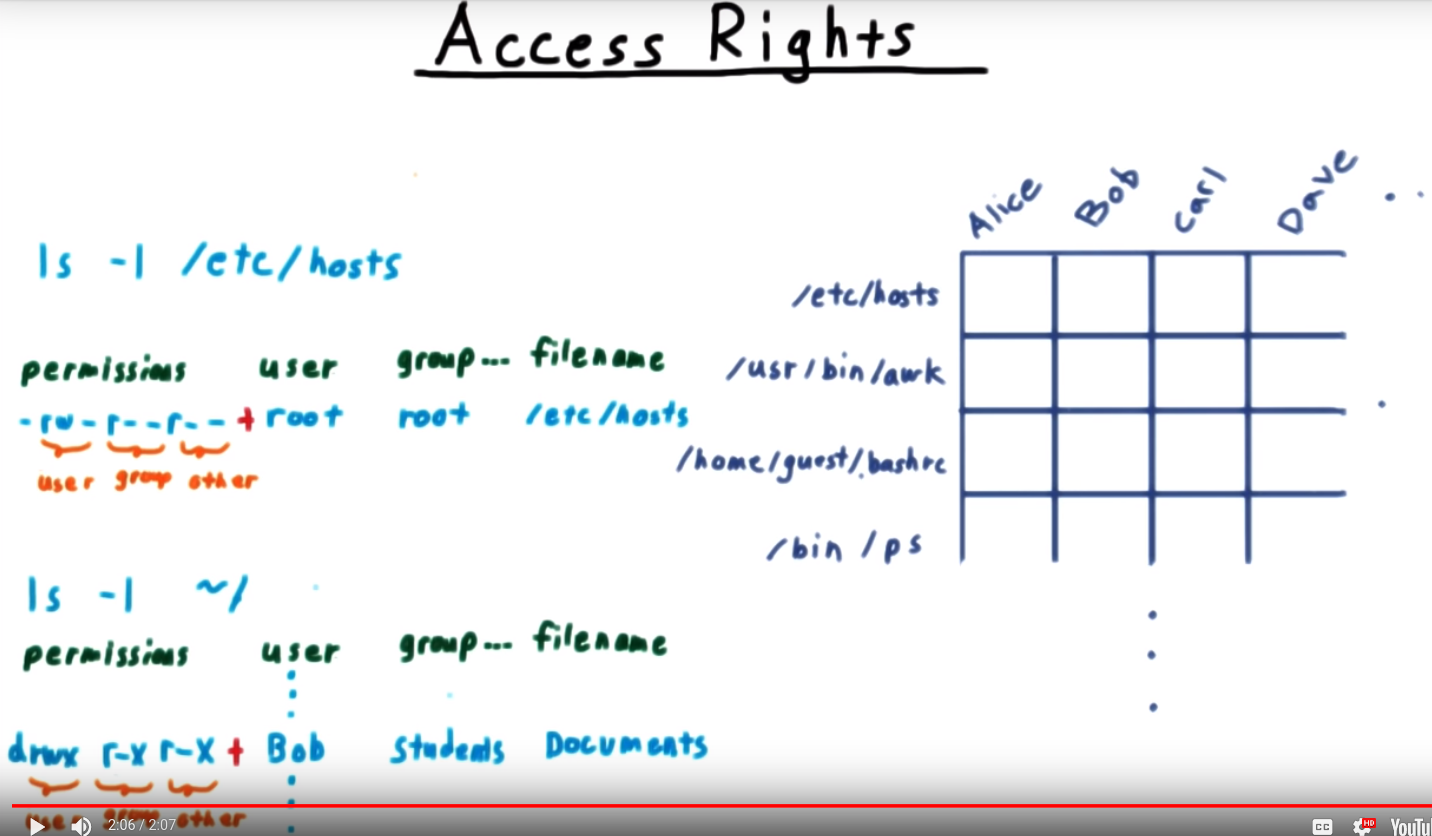 Access Rights
ls -l /etc/hosts
permissions user group... filename
-rw-r--r--+ root root /etc/hosts
user group other
ls -l ~/
permissions user group... filename
drwx r-x r-x + Bob students Documents
user group other
Alice Bob Carl Dave ...
/etc/hosts
/usr/bin/awk
/home/guest/.bashrc
/bin/ps
2:06 / 2:07
CC HD YouTu